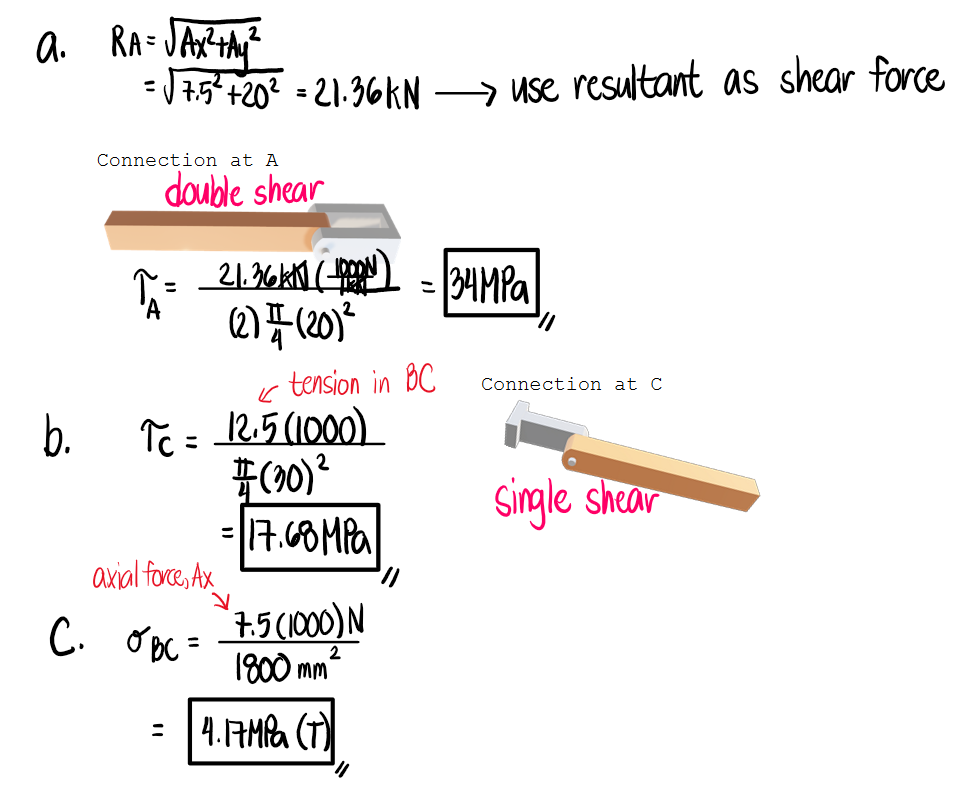 a. RA = √Ax²+Ay²
= √7.5²+20² = 21.36kN ⟶ use resultant as shear force
Connection at A
double shear
τA = 21.36kN (1000N/1kN) / (2) π/4 (20)² = 34MPa //
tension in BC
Connection at C
b. τC = 12.5(1000) / π/4 (30)²
single shear
= 17.68MPa //
axial force, Ax
C. σBC = 7.5(1000)N / 1800 mm²
= 4.17MPa (T) //